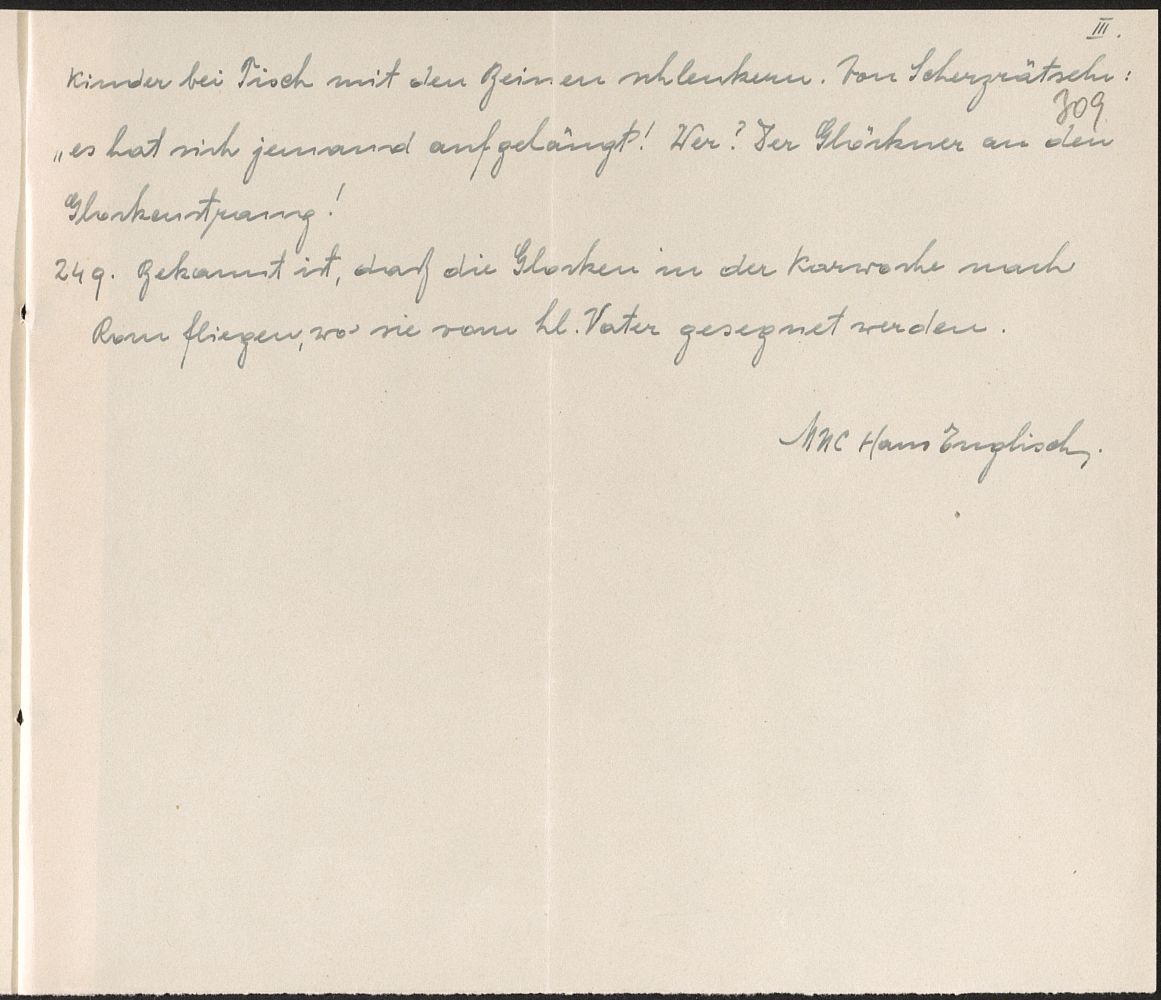 III.
Kinder bei Tisch mit den Beinen schlenkern. Von Scherzrätseln:
309
„es hat sich jemand aufgehängt! Wer? Der Glöckner an den
Glockenstrang!
249. Bekannt ist, daß die Glocken in der Karwoche nach
Rom fliegen, wo sie vom hl. Vater gesegnet werden.
Hans Englisch.